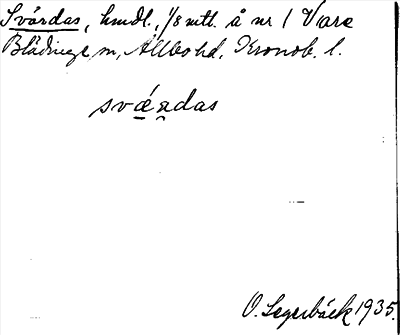 Svärdas, hmdl., 1/8 mtl. å nr 1 Vare
Blädinge sn, Allbo hd, Kronob. l.
svǽ̲ṇdas
O. Segerbäck 1935.